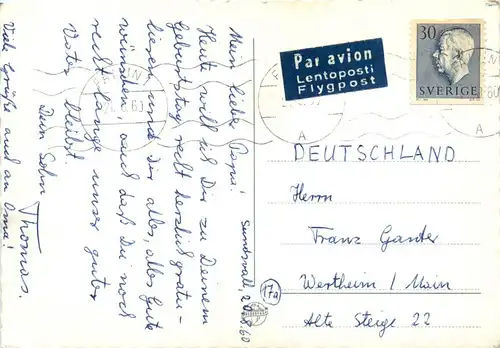 Sundsvall, 20.8.60
Mein lieber Papa!
Heute will ich Dir zu Deinem
Geburtstag recht herzlich gratu-
lieren und Dir alles, alles Gute
wünschen, auch daß Du noch
recht lange unser guter
Vater bleibst.
Dein Sohn Thomas.
Viele Grüße auch an Oma!
Par avion
Lentoposti
Flygpost
30
SVERIGE
A
A
DEUTSCHLAND
Herrn
Franz Ganter
17a
Wertheim / Main
Alte Steige 22